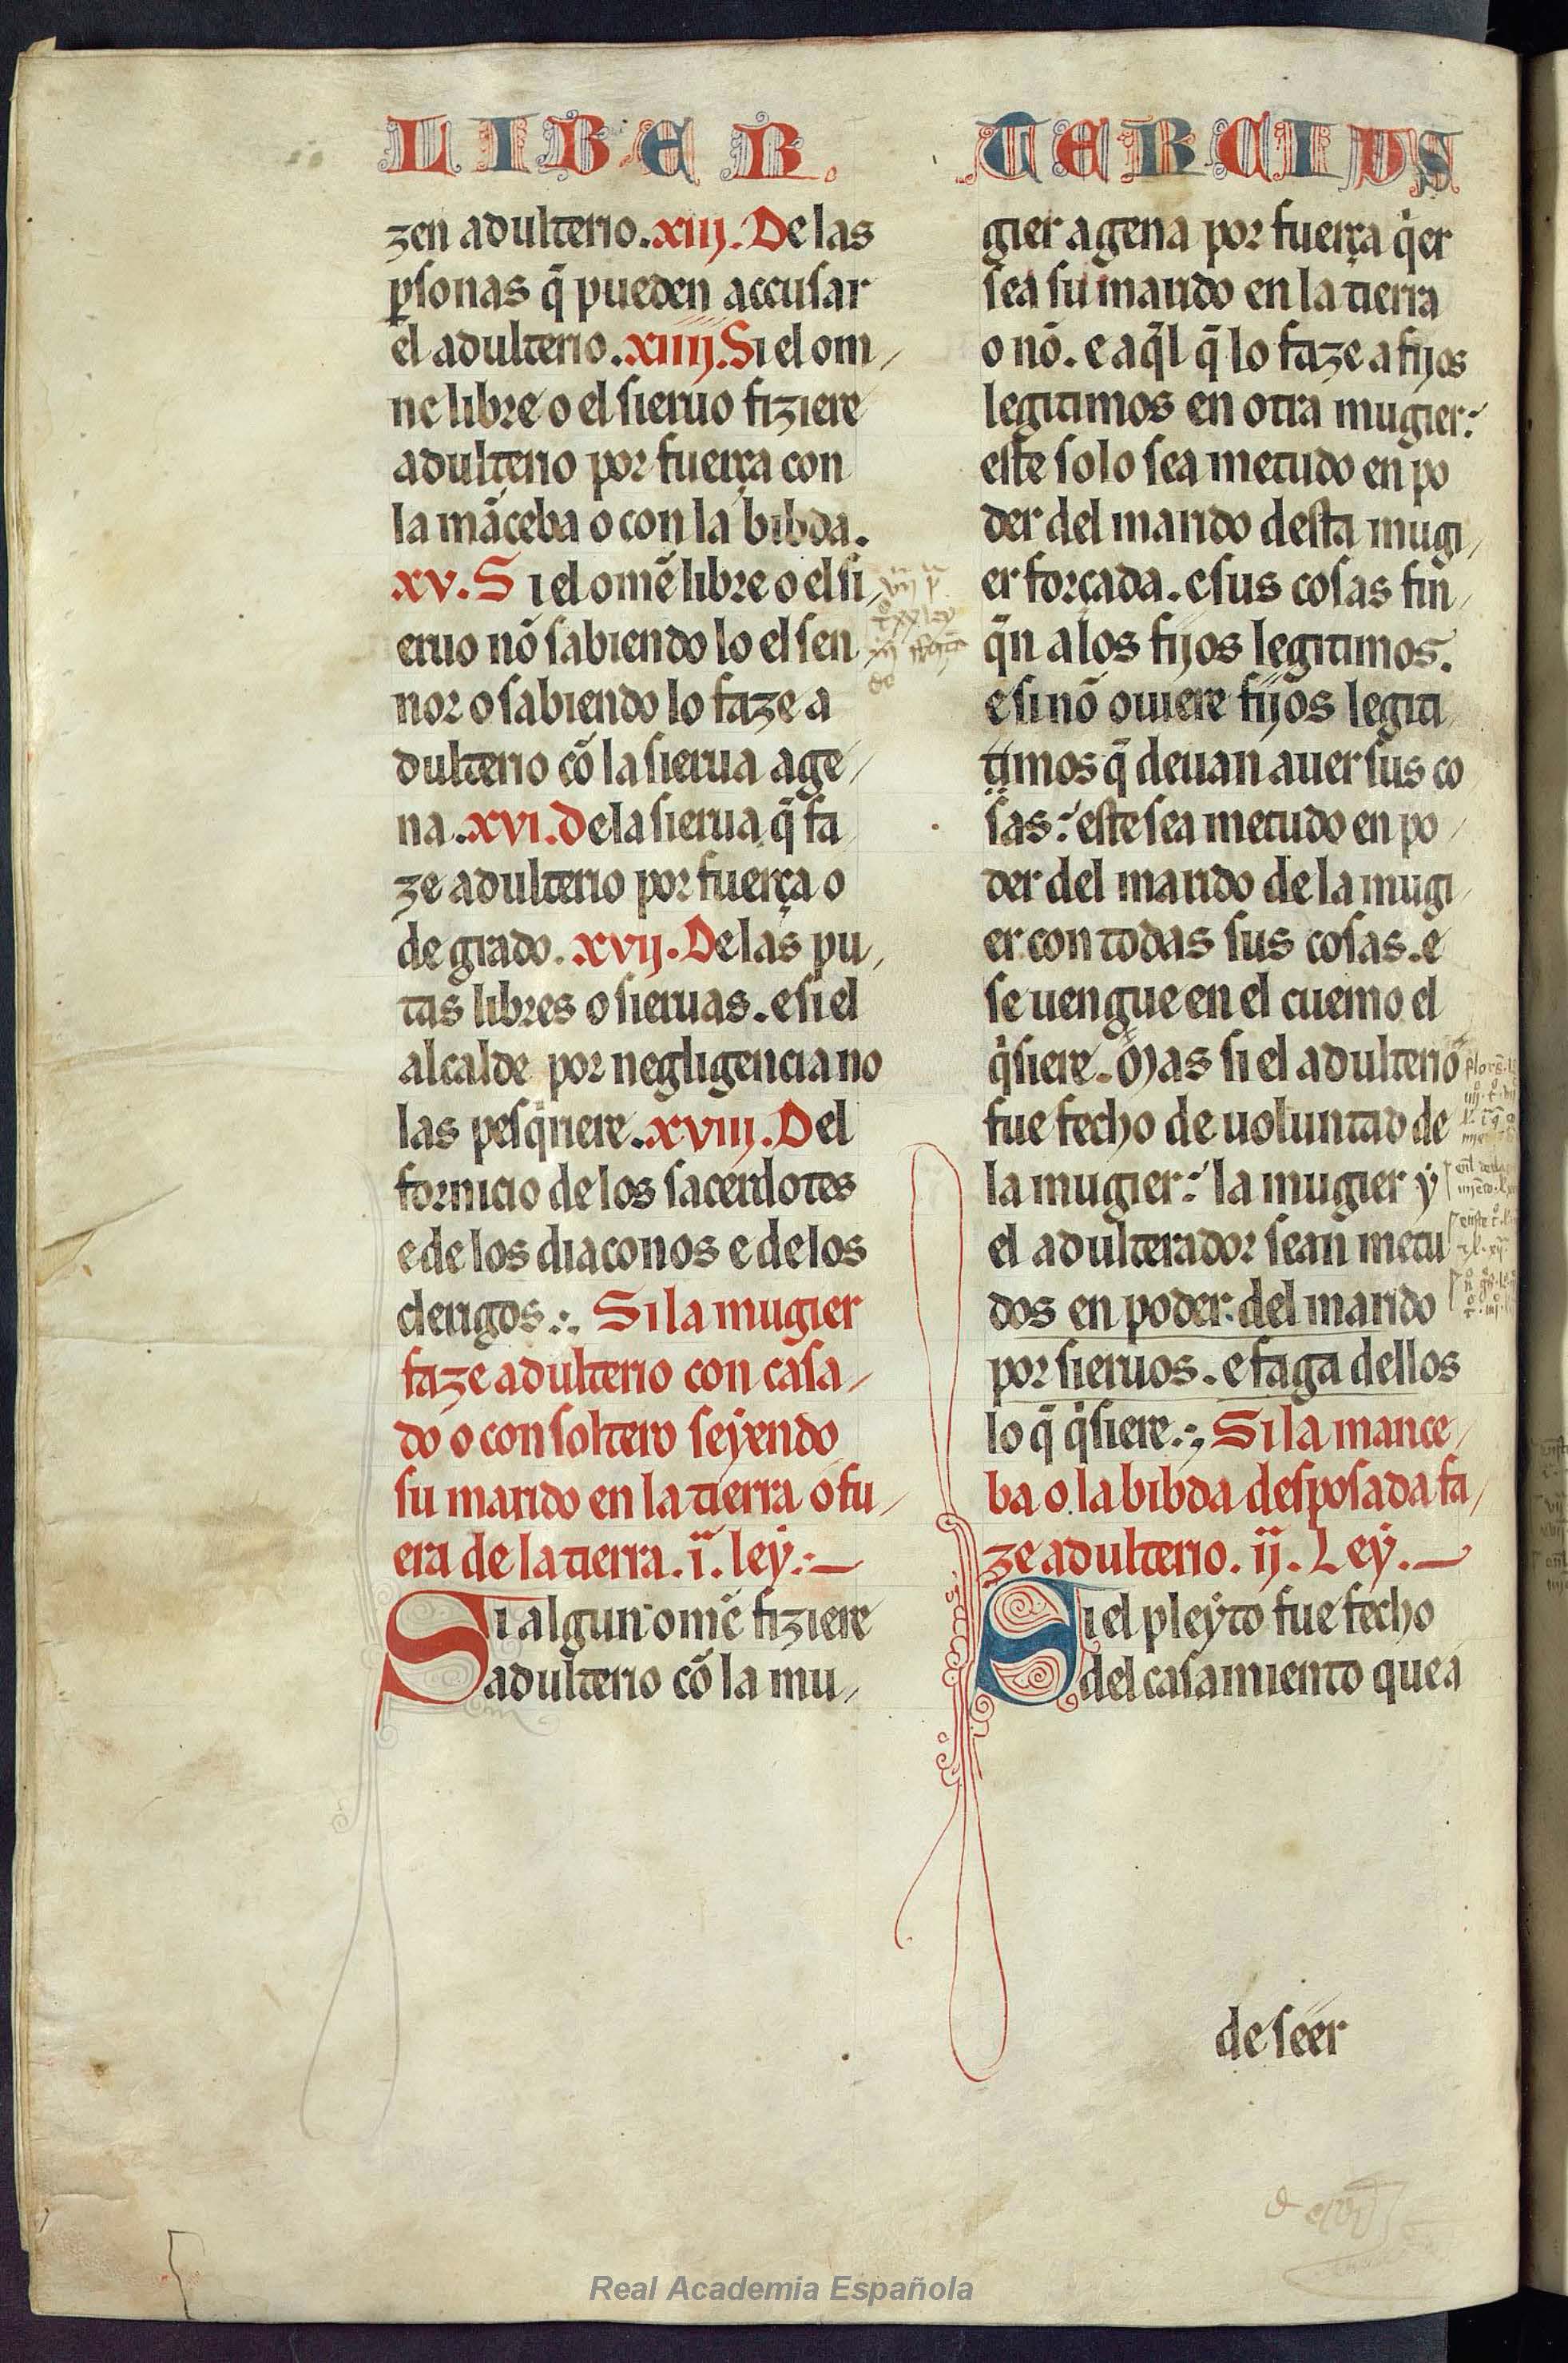 LIBER.
zen adulterio. xiij. De las
ꝑsonas q̃ pueden accusar
el adulterio. xiiij. Si el om-
ne libre o el sieruo fiziere
adulterio por fuerça con
la mãceba o con la bibda.
xv. Si el omẽ libre o el si-
eruo nõ sabiendo lo el sen
nor o sabiendo lo faze a
dulterio cõ la sierua age-
na. xvi. De la sierua q̃ fa
ze adulterio por fuerça o
de grado. xvij. De las pu-
tas libres o sieruas. e si el
alcalde por negligencia no
las pesq̇riere. xviij. Del
fornicio de los sacerdotes
e de los diaconos e de los
clerigos. Si la mugier
faze adulterio con casa-
do o con soltero seyendo
su marido en la tierra o fu-
era de la tierra. i.ª ley.
Si algun omẽ fiziere
adulterio cõ la mu-
TERCIUS
gier agena por fuerça q̇er
sea su marido en la tierra
o nõ. e aq̃l q̃ lo faze a fijos
legitimos en otra mugier:
este solo sea metudo en po
der del marido desta mugi-
er forçada. e sus cosas fin-
q̃n a los fijos legitimos.
e si nõ ouiere fijos legiti
timos q̃ deuan auer sus co
sas: este sea metudo en po-
der del marido de la mugi-
er con todas sus cosas. e
se uengue en el cuemo el
q̇siere. Mas si el adulterio
fue fecho de uoluntad de
la mugier: la mugier y
el adulterador sean metu
dos en poder del marido
por sieruos. e faga dellos
lo q̃ q̇siere. Si la mance-
ba o la bibda desposada fa-
ze adulterio. ij. Ley.
Si el pleyto fue fecho
del casamiento que a
de seer
Real Academia Española